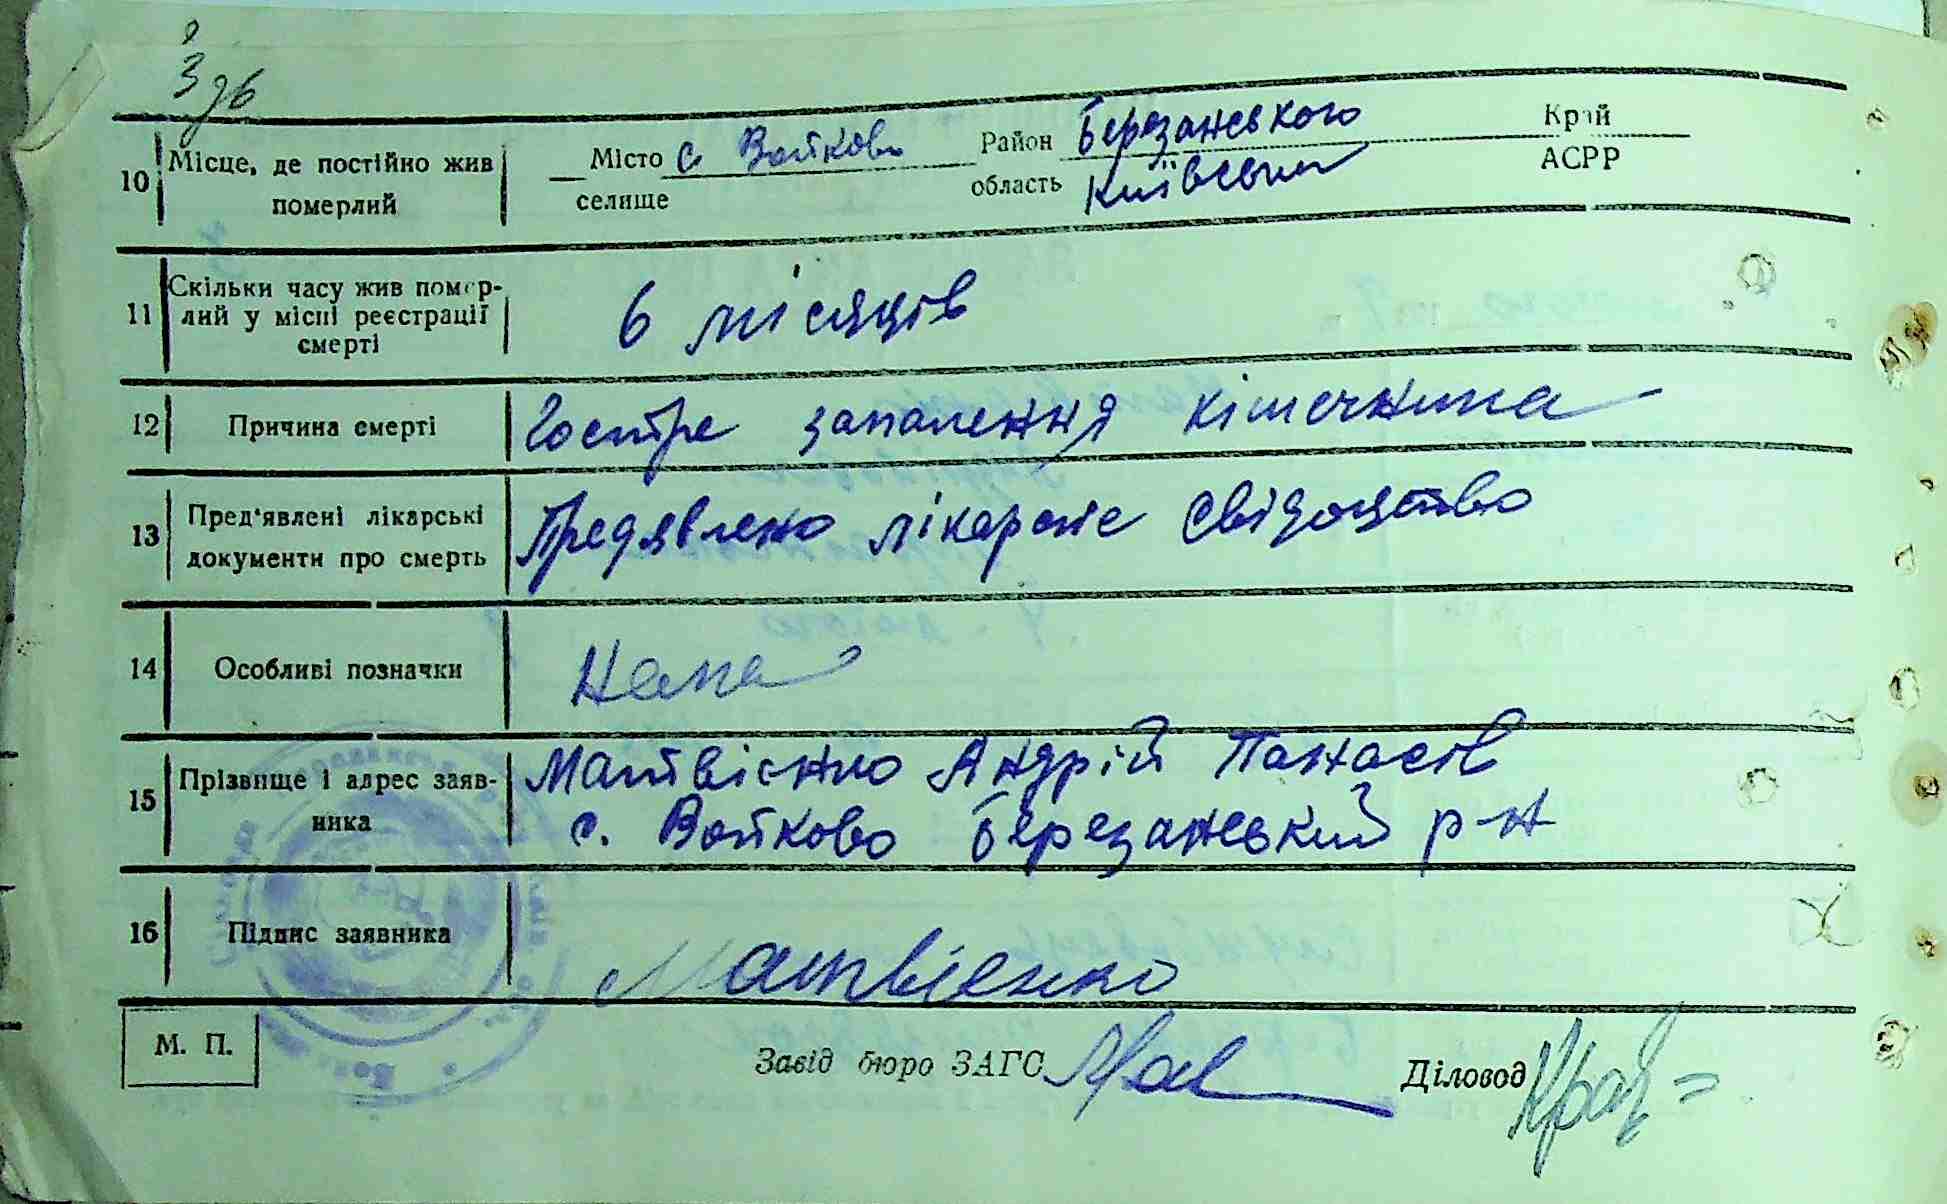 10 Місце, де постійно жив померлий Місто с. Войково Район Березанського Край
селище область Київська АСРР
11 Скільки часу жив помер-
лий у місці реєстрації
смерті
6 місяців
12 Причина смерті Гостре запалення кішечника
13 Пред'явлені лікарські
документи про смерть
Предявлено лікарське свідоцтво
14 Особливі позначки Нема
15 Прізвище і адрес заяв-
ника
Матвієнко Андрій Панасів
с. Войково Березанський р-н
16 Підпис заявника Матвієнко
М. П. Завід бюро ЗАГС Діловод